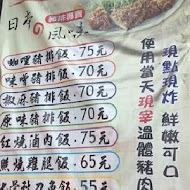 日常風味
咖哩豬排飯.75元
味噌豬排飯.70元
椒麻豬排飯.70元
原味豬排飯.70元
紅燒滷肉飯.75元
照燒雞腿飯.65元
魚飯.55元
現點現炸 鮮嫩可口
使用當天現宰溫體豬肉